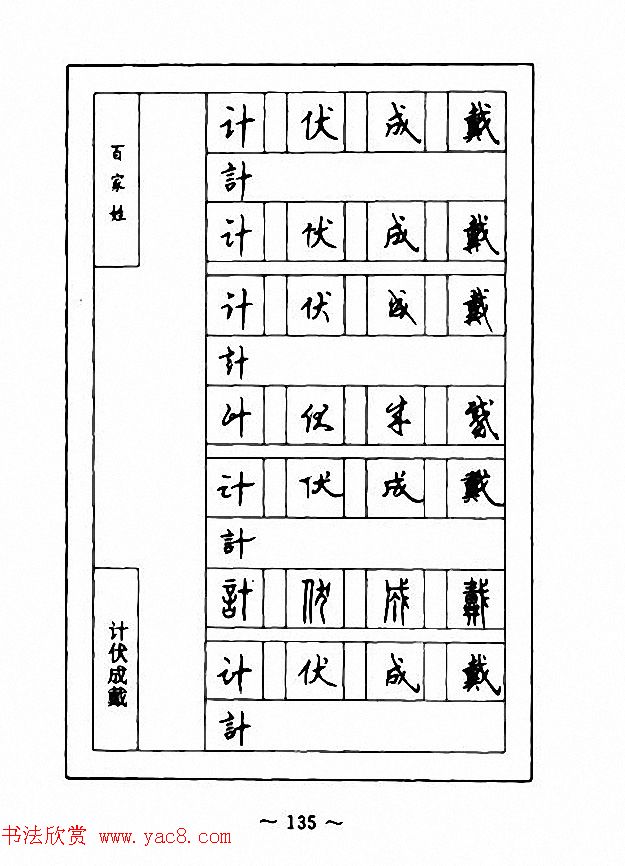 百家姓
计伏成戴
计 伏 成 戴
計
计 伏 成 戴
计 伏 成 戴
計
计 伏 成 戴
计 伏 成 戴
計
計 伏 成 戴
计 伏 成 戴
計
~ 135 ~
书法欣赏 www.yac8.com